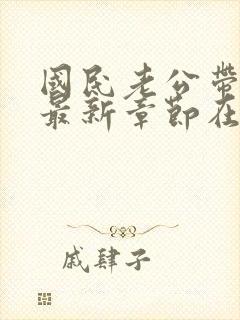 國民老公帶
最新章節在
戚肆子